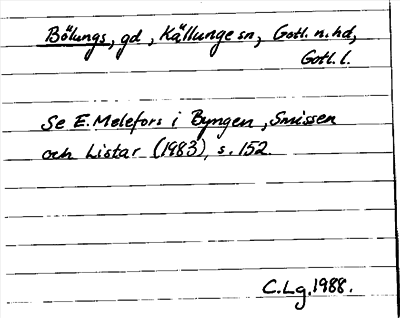 Bölungs, gd, Källunge sn, Gotl. n. hd,
Gotl. l.
Se E. Melefors i Byngen, Smissen
och Listar (1983), s. 152.
C. Lg. 1988.